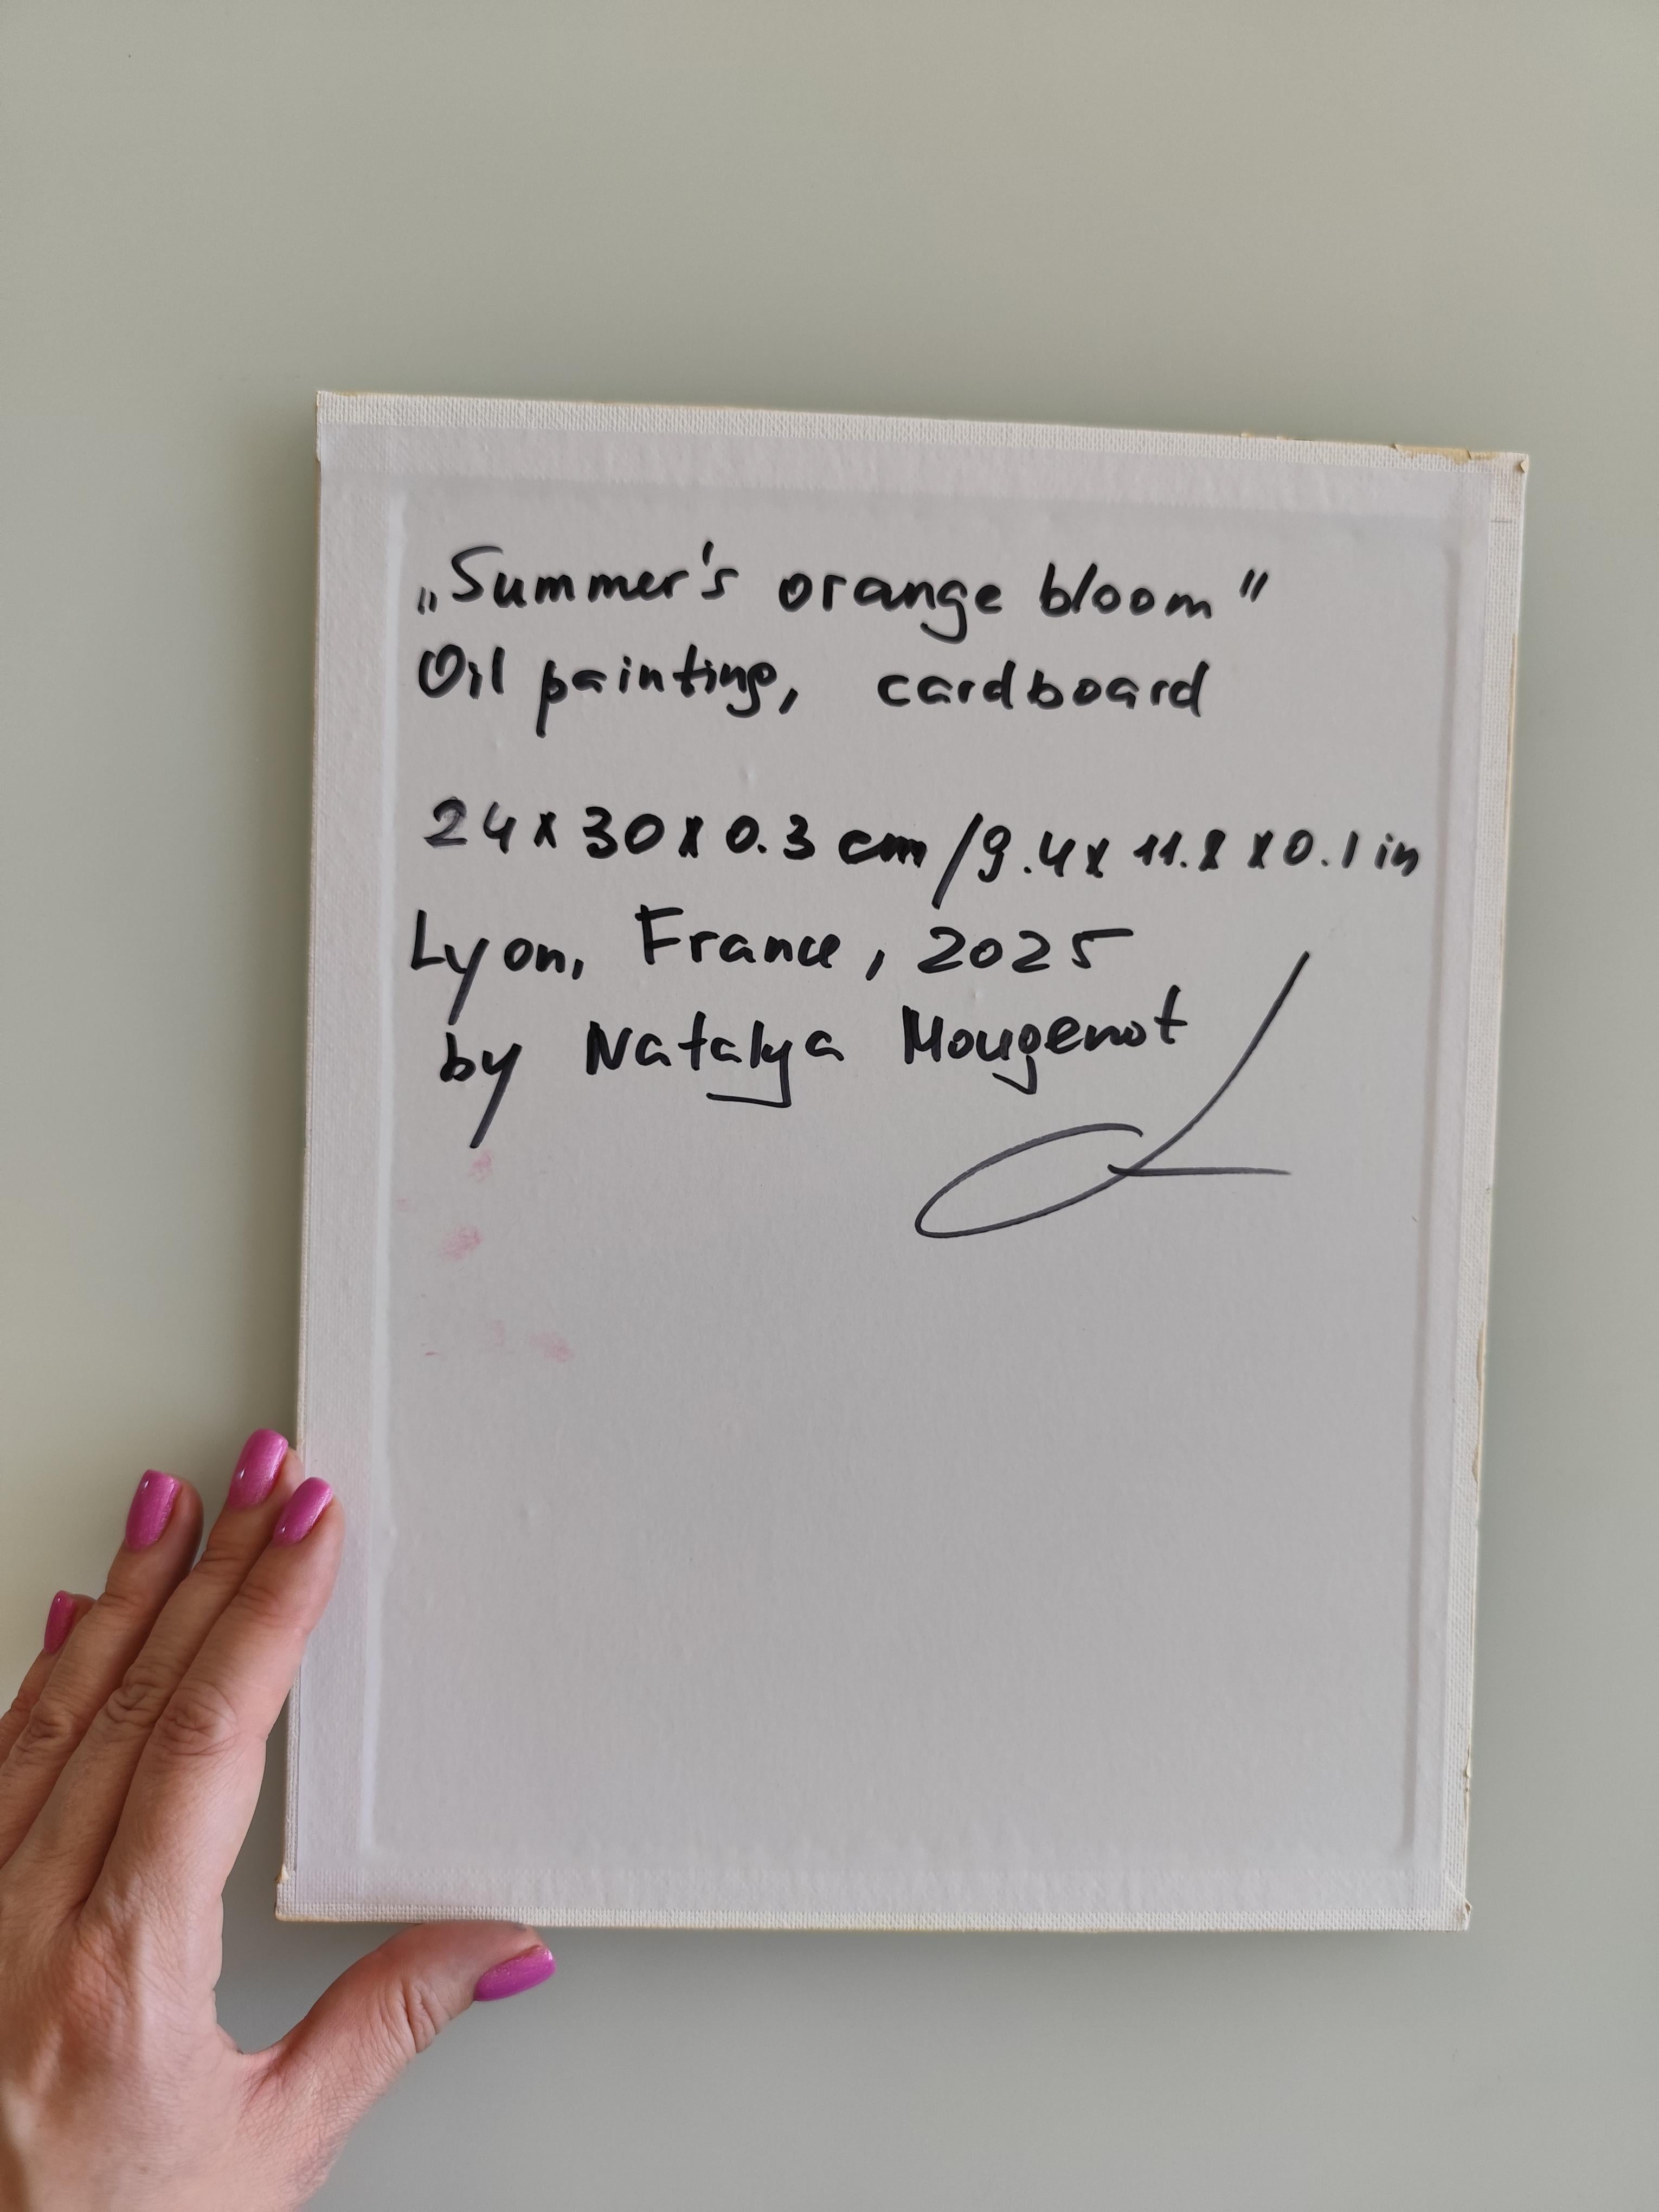 „Summer's orange bloom"
Oil painting, cardboard
24x30x0.3 cm/9.4x11.8x0.1 in
Lyon, France, 2025
by Natalya Mougenot